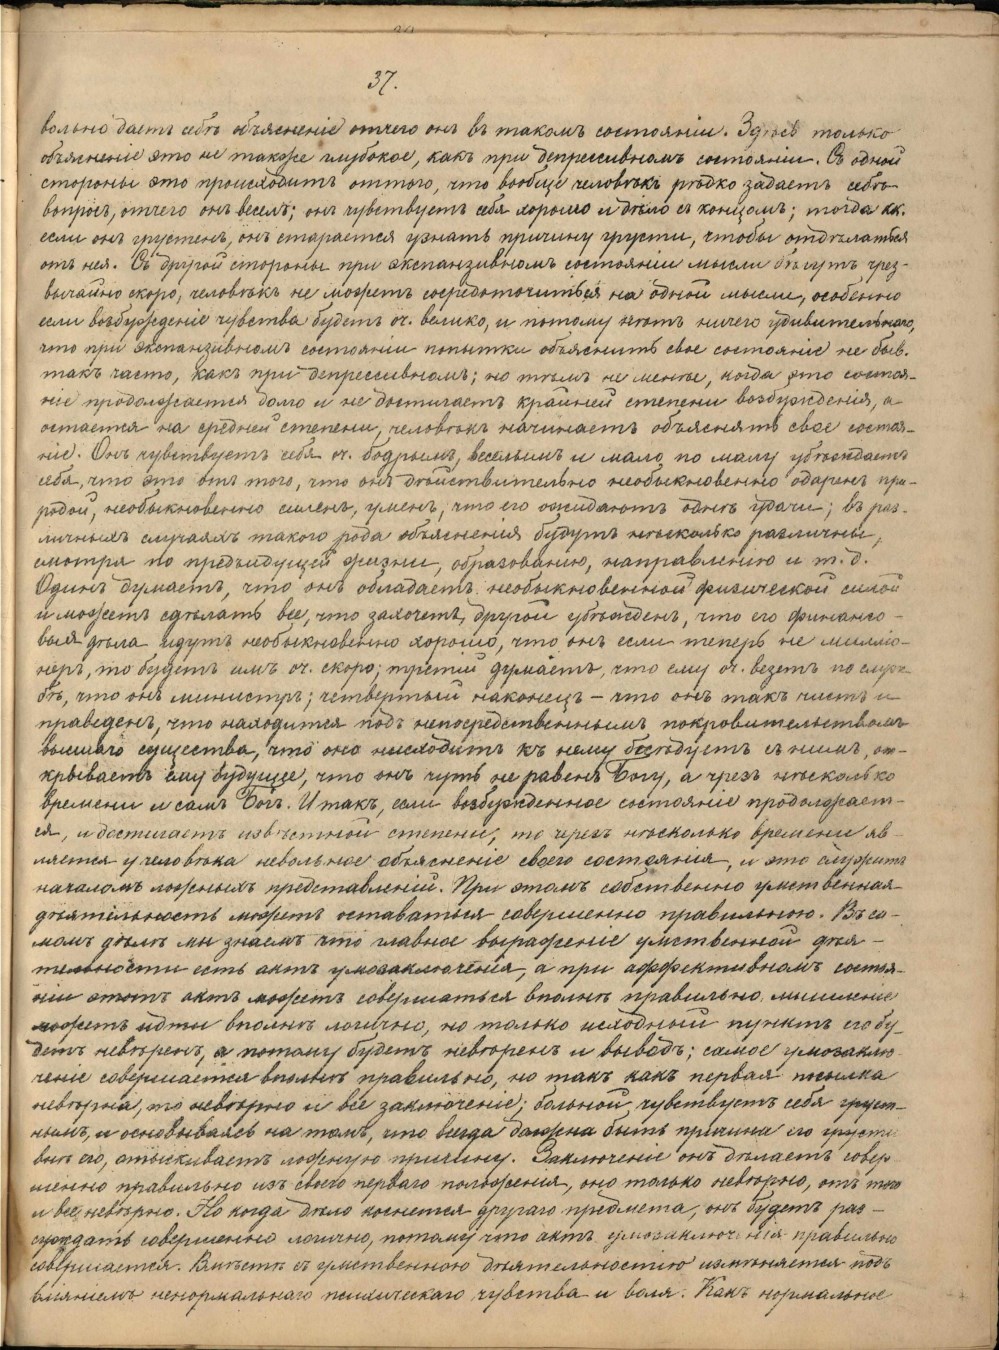 37.
вольно даетъ себѣ объясненіе отчего онъ въ такомъ состояніи. Здѣсь только
объясненіе это не такое глубокое, какъ при депрессивномъ состояніи. Съ одной
стороны это происходитъ оттого, что вообще человѣкъ рѣдко задаетъ себѣ
вопросъ, отчего онъ веселъ; онъ чувствуетъ себя хорошо и дѣло съ концомъ; тогда кк.
если онъ грустенъ, онъ старается узнать причину грусти, чтобы отдѣлаться
отъ нея. Съ другой стороны при экспанзивномъ состояніи мысли бѣгутъ чрез-
вычайно скоро, человѣкъ не можетъ сосредоточиться на одной мысли, особенно
если возбужденіе чувства будетъ оч. велико, и потому нѣтъ ничего удивительнаго,
что при экспанзивномъ состояніи попытки объяснить свое состояніе не быв.
такъ часто, какъ при депрессивномъ; но тѣмъ не менѣе, когда это состоя-
ніе продолжается долго и не достигаетъ крайней степени возбужденія, а
остается на средней степени, человѣкъ начинаетъ объяснять свое состоя-
ніе. Онъ чувствуетъ себя оч. бодрымъ, веселымъ и мало по малу убѣждаетъ
себя, что это отъ того, что онъ дѣйствительно необыкновенно одаренъ при-
родой, необыкновенно силенъ, уменъ, что его ожидаютъ однѣ удачи; въ раз-
личныхъ случаяхъ такого рода объясненія будутъ нѣсколько различны,
смотря по предъидущей жизни, образованію, направленію и т. д.
Одинъ думаетъ, что онъ обладаетъ необыкновенной физической силой
и можетъ сдѣлать все, что захочетъ, другой убѣжденъ, что его финансо-
выя дѣла идутъ необыкновенно хорошо, что онъ если теперь не милліо-
неръ, то будетъ имъ оч. скоро; третій думаетъ, что ему оч. везетъ по служ-
бѣ, что онъ министръ; четвертый наконецъ – что онъ такъ чистъ и
праведенъ, что находится подъ непосредственнымъ покровительствомъ
высшаго существа, что оно нисходитъ къ нему бесѣдуетъ съ нимъ, от-
крываетъ ему будущее, что онъ чуть не равенъ Богу, а чрезъ нѣсколько
времени и самъ Богъ. Итакъ, если возбужденное состояніе продолжает-
ся, и достигаетъ извѣстной степени, то черезъ нѣсколько времени яв-
ляется у человѣка невольное объясненіе своего состоянія, и это служитъ
началомъ ложныхъ представленій. При этомъ собственно умственная
дѣятельность можетъ оставаться совершенно правильною. Въ са-
момъ дѣлѣ мы знаемъ что главное выраженіе умственной дѣя-
тельности есть актъ умозаключенія, а при аффективномъ состоя-
ніи этотъ актъ можетъ совершаться вполнѣ правильно, мышленіе
можетъ идти вполнѣ логично, но только исходный пунктъ его бу-
детъ невѣренъ, а потому будетъ невѣренъ и выводъ; самое умозаклю-
ченіе совершается вполнѣ правильно, но такъ какъ первая посылка
невѣрна, то невѣрно и все заключеніе; больной, чувствуетъ себя груст-
нымъ, и основываясь на томъ, что всегда должна быть причина его грусти
внѣ его, отыскиваетъ ложную причину. Заключеніе онъ дѣлаетъ совер-
шенно правильно изъ своего перваго положенія, оно только невѣрно, отъ того
и все невѣрно. Но когда дѣло коснется другаго предмета, онъ будетъ раз-
суждать совершенно логично, потому что актъ умозаключенія правильно
совершается. Вмѣстѣ съ умственною дѣятельностію измѣняется подъ
вліяніемъ ненормальнаго психическаго чувства и воля. Какъ нормальное